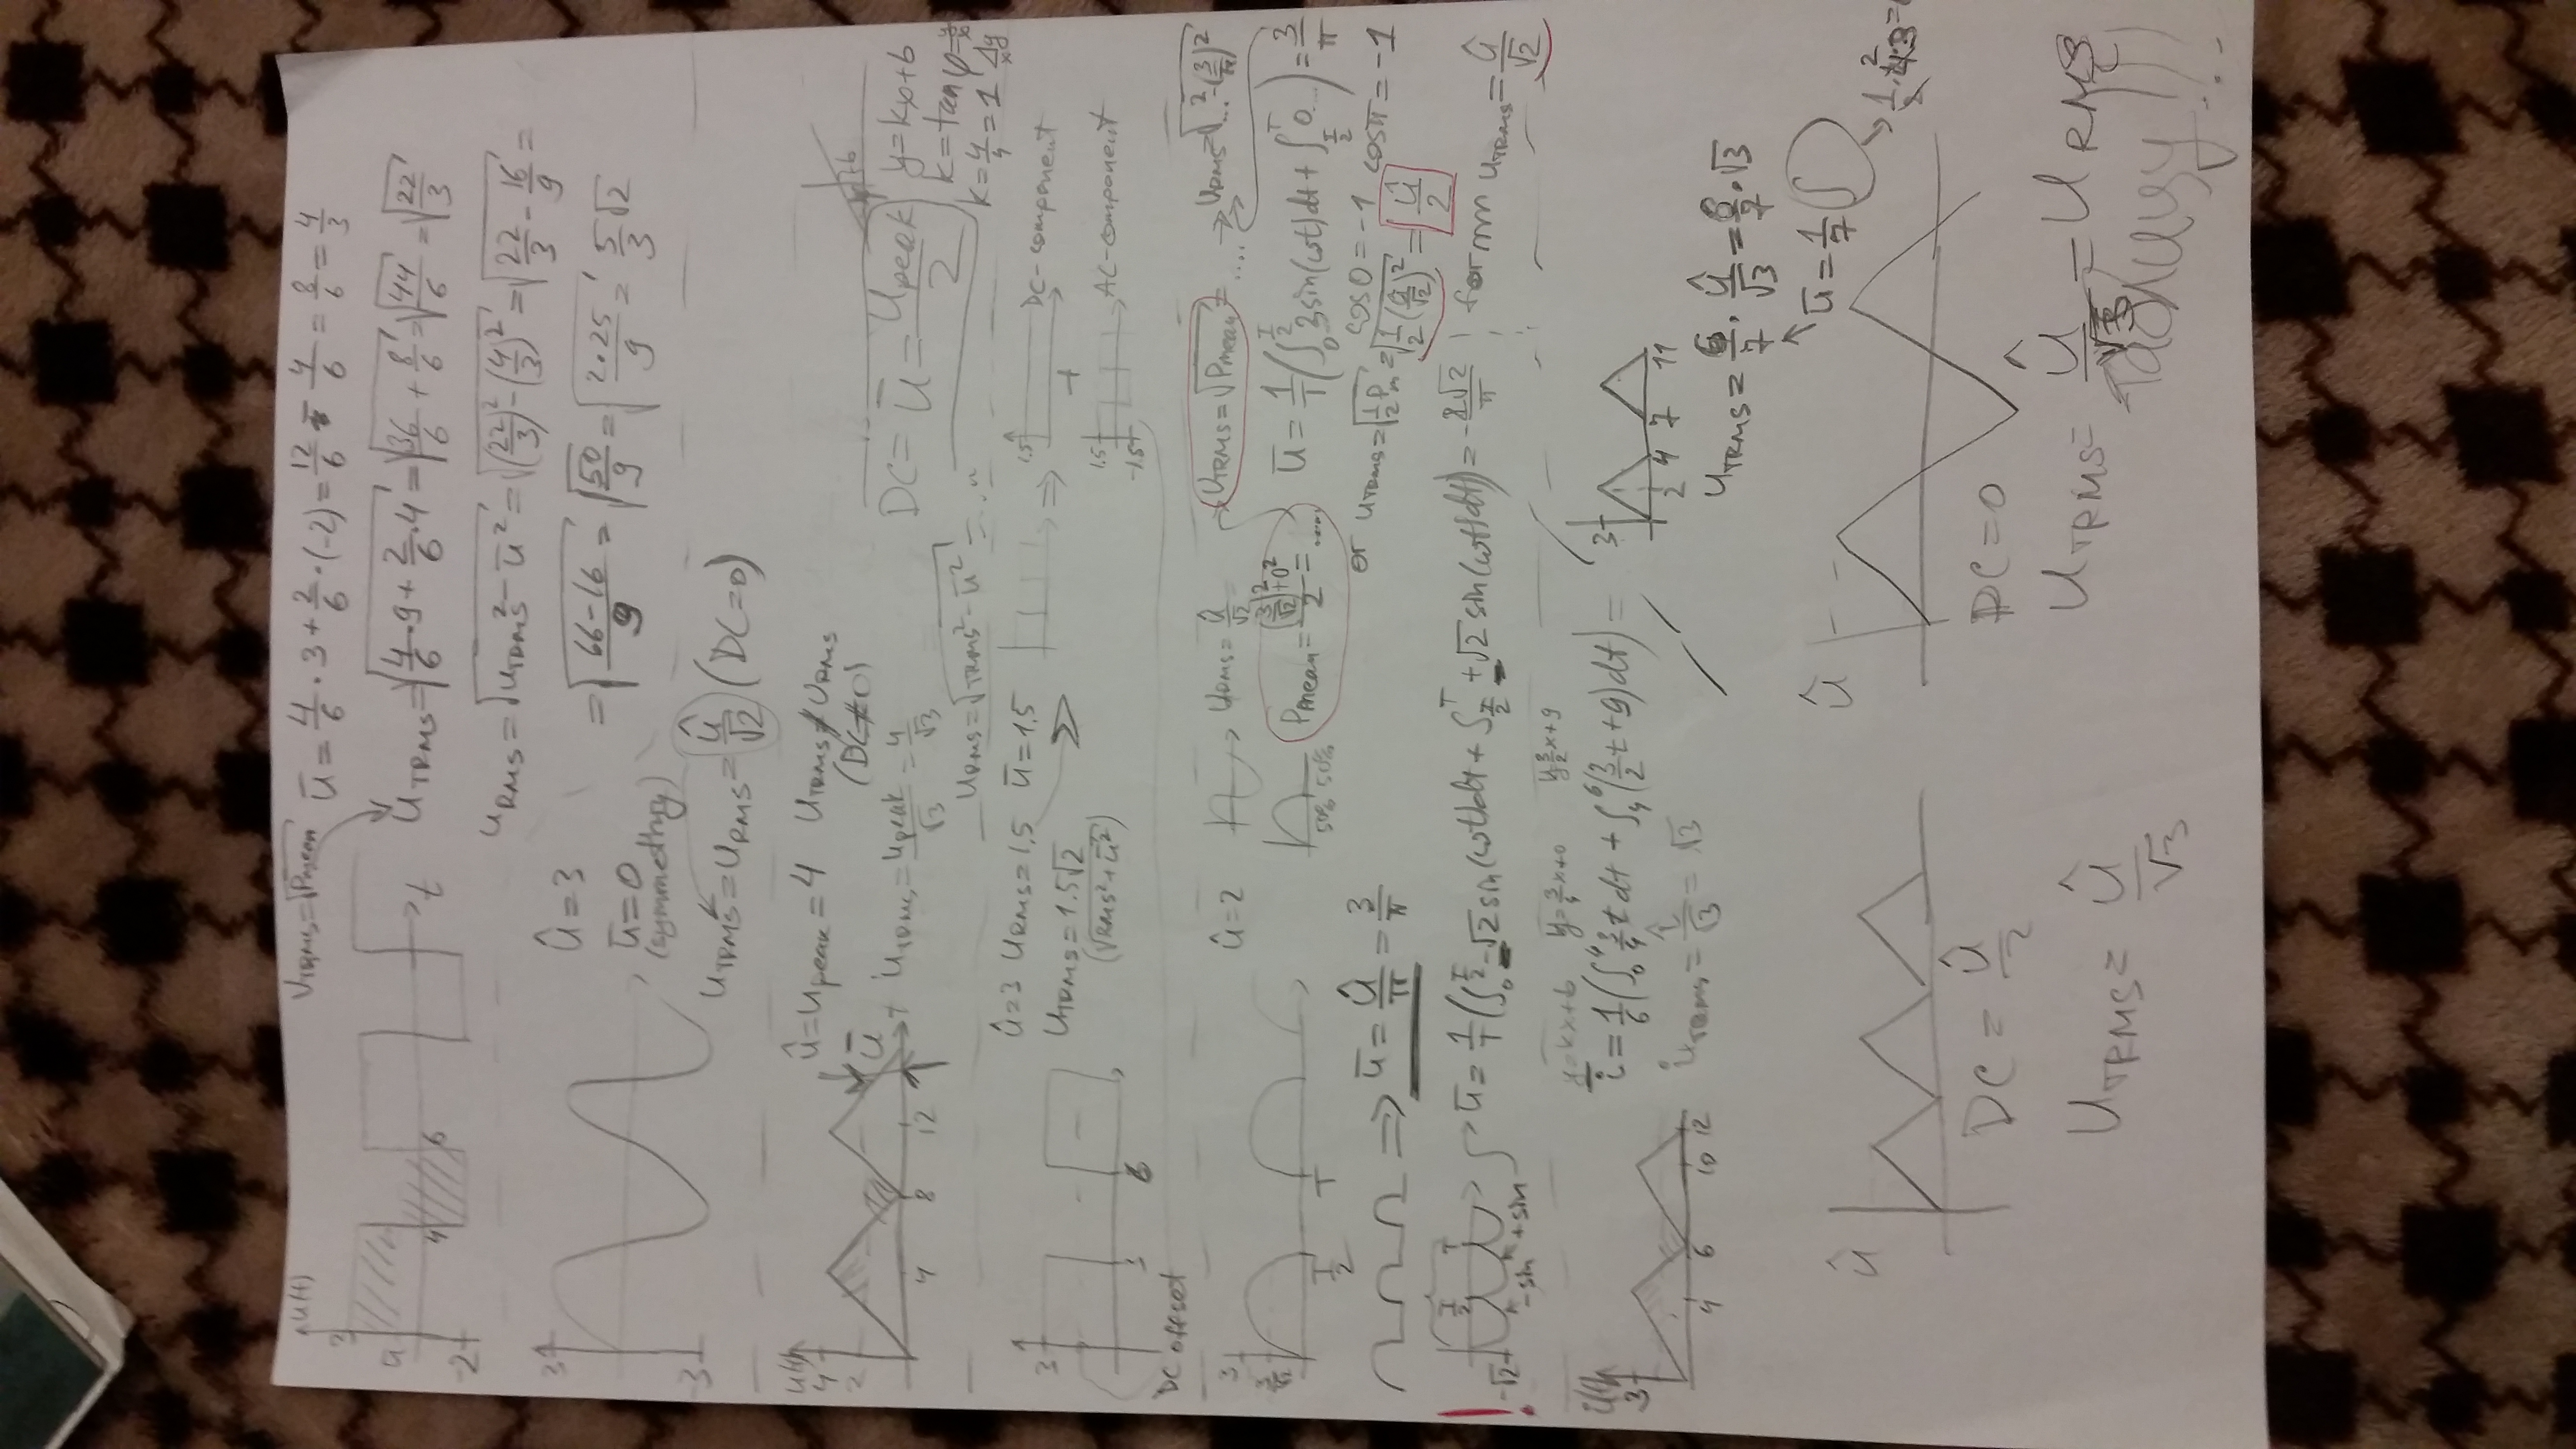 u(t)
V_TRMS = √P_mean
ū = 4/6 · 3 + 2/6 · (-2) = 12/6 - 4/6 = 8/6 = 4/3
3
4
6
t
-2
u_TRMS = √(4/6 · 9 + 2/6 · 4) = √(36/6 + 8/6) = √(44/6) = √(22/3)
u_RMS = √(u_TRMS² - ū²) = √((22/3)² - (4/3)²) = √(22/3 - 16/9) =
= √((66-16)/9) = √(50/9) = √(2·25/9) = 5/3 √2
3
-3
û = 3
ū = 0
(symmethry)
u_TRMS = u_RMS = û/√2 (DC = 0)
u(t)
4
2
4
8
12
t
ū
û = u_peak = 4 u_TRMS ≠ u_RMS
(DC ≠ 0)
u_TRMS = u_peak/√3 = 4/√3
u_RMS = √(TRMS² - ū²) = ...
DC = ū = u_peak/2
y = kx + b
k = tan φ =
k = 4/4 = 1
3
3
6
DC offset
û = 3 u_RMS = 1.5 ū = 1.5
u_TRMS = 1.5√2
(√(RMS² + ū²))
⇒
1.5
DC-component
t
1.5
-1.5
AC-component
3
T/2
T
û = 2
u_RMS = û/√2
50% 50%
P_mean = ((3/√2)² + 0²)/2 = ....
u_TRMS = √P_mean = .... → u_RMS = √(...² - (3/π)²)
ū = 1/T (∫₀^(T/2) 3 sin(ωt)dt + ∫_(T/2)^T 0...) = 3/π
cos0 = -1 cosπ = -1
or u_TRMS = √(1/2 P_m) = √(1/2 (û/√2)²) = û/2
⇒ ū = û/π = 3/π
!
T/2
T
-√2
-sin +sin
ū = 1/T (∫₀^(T/2) -√2 sin(ωt)dt + ∫_(T/2)^T +√2 sin(ωt)dt) = -2√2/π
for u_TRMS = û/√2
y = kx + b y = 3/4 x + 0 y = 3/2 x + 9
i(t)
3
4
6
10
12
ī = 1/6 (∫₀⁴ 3/4 t dt + ∫₄⁶ (3/2 t + 9) dt) =
i_TRMS = î/√3 = √3
3
2
4
7
11
u_TRMS = 6/7 · û/√3 = 6/7 · √3
ū = 1/7 ∫
û
DC = û/2
u_TRMS = û/√3
û
DC = 0
u_TRMS = û/√3 = u_RMS
Таблицу!!!